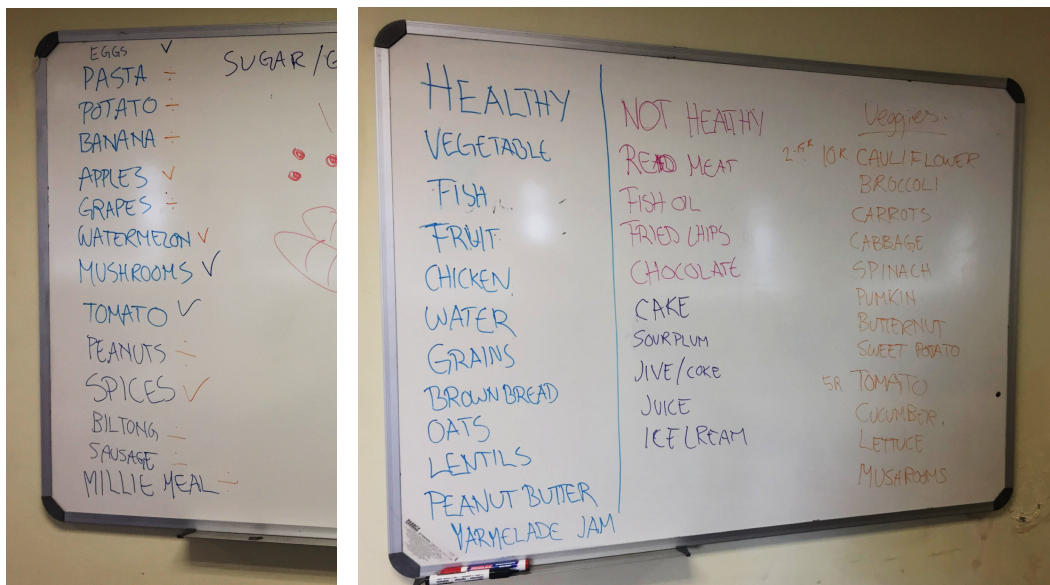 EGGS ✓
PASTA ÷
POTATO ÷
BANANA ÷
APPLES ✓
GRAPES ÷
WATERMELON ✓
MUSHROOMS ✓
TOMATO ✓
PEANUTS ÷
SPICES ✓
BILTONG ÷
SAUSAGE ÷
MILLIE MEAL ÷
SUGAR/G
HEALTHY
VEGETABLE
FISH
FRUIT
CHICKEN
WATER
GRAINS
BROWN BREAD
OATS
LENTILS
PEANUT BUTTER
MARMELADE JAM
NOT HEALTHY
READ MEAT
FISH OIL
FRIED CHIPS
CHOCOLATE
CAKE
SOURPLUM
JIVE/COKE
JUICE
ICE CREAM
Veggies.
10R CAULIFLOWER
BROCCOLI
CARROTS
CABBAGE
SPINACH
PUMKIN
BUTTERNUT
SWEET POTATO
5R TOMATO
CUCUMBER.
LETTUCE
MUSHROOMS